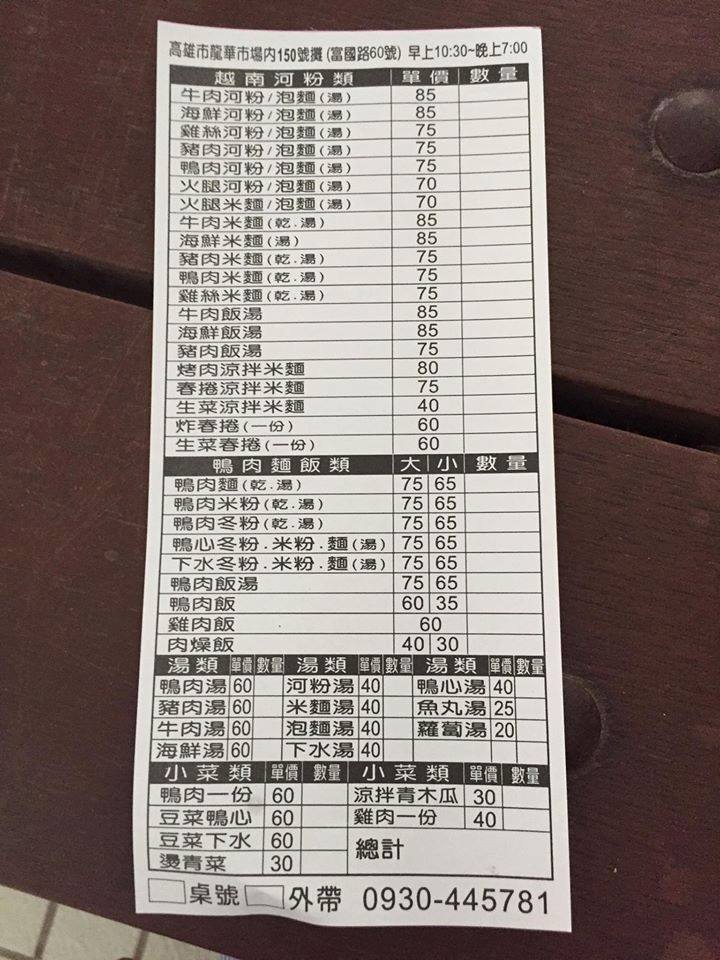 高雄市龍華市場內150號攤(富國路60號) 早上10:30~晚上7:00
越南河粉類 單價 數量
牛肉河粉/泡麵(湯) 85
海鮮河粉/泡麵(湯) 85
雞絲河粉/泡麵(湯) 75
豬肉河粉/泡麵(湯) 75
鴨肉河粉/泡麵(湯) 75
火腿河粉/泡麵(湯) 70
火腿米麵/泡麵(湯) 70
牛肉米麵(乾.湯) 85
海鮮米麵(湯) 85
豬肉米麵(乾.湯) 75
鴨肉米麵(乾.湯) 75
雞絲米麵(乾.湯) 75
牛肉飯湯 85
海鮮飯湯 85
豬肉飯湯 75
烤肉涼拌米麵 80
春捲涼拌米麵 75
生菜涼拌米麵 40
炸春捲(一份) 60
生菜春捲(一份) 60
鴨肉麵飯類 大 小 數量
鴨肉麵(乾.湯) 75 65
鴨肉米粉(乾.湯) 75 65
鴨肉冬粉(乾.湯) 75 65
鴨心冬粉.米粉.麵(湯) 75 65
下水冬粉.米粉.麵(湯) 75 65
鴨肉飯湯 75 65
鴨肉飯 60 35
雞肉飯 60
肉燥飯 40 30
湯類 單價 數量 湯類 單價 數量 湯類 單價 數量
鴨肉湯 60 河粉湯 40 鴨心湯 40
豬肉湯 60 米麵湯 40 魚丸湯 25
牛肉湯 60 泡麵湯 40 蘿蔔湯 20
海鮮湯 60 下水湯 40
小菜類 單價 數量 小菜類 單價 數量
鴨肉一份 60 涼拌青木瓜 30
豆菜鴨心 60 雞肉一份 40
豆菜下水 60 總計
燙青菜 30
桌號 外帶 0930-445781